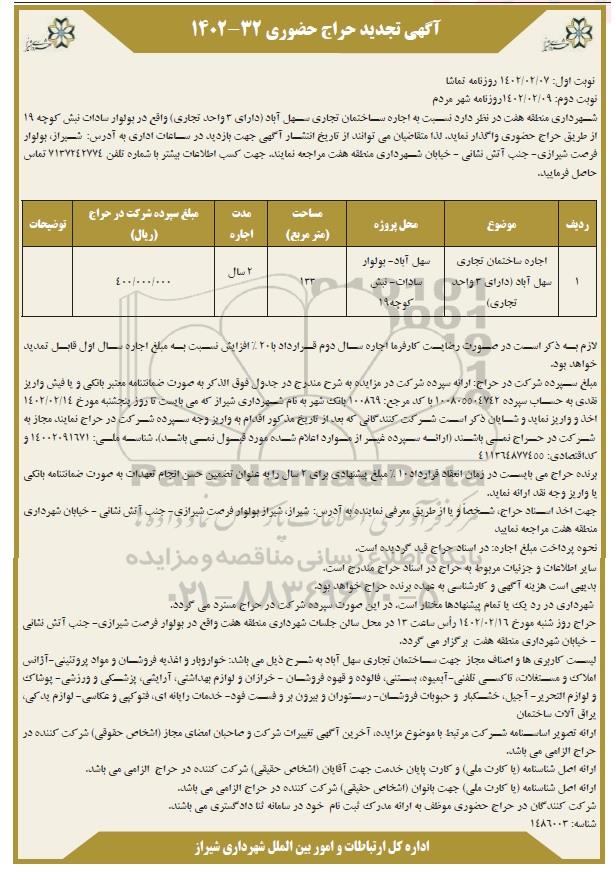 آگهی تجدید حراج حضوری ۳۲-۱۴۰۲
نوبت اول: ۱۴۰۲/۰۲/۰۷ روزنامه تماشا
نوبت دوم: ۱۴۰۲/۰۲/۰۹روزنامه شهر مردم
شهرداری منطقه هفت در نظر دارد نسبت به اجاره ساختمان تجاری سهل آباد (دارای ۳ واحد تجاری) واقع در بولوار سادات نبش کوچه ۱۹
از طریق حراج حضوری واگذار نماید. لذا متقاضیان می توانند از تاریخ انتشار آگهی جهت بازدید در ساعات اداری به آدرس: شیراز، بولوار
فرصت شیرازی- جنب آتش نشانی - خیابان شهرداری منطقه هفت مراجعه نمایند. جهت کسب اطلاعات بیشتر با شماره تلفن ۷۱۳۷۲۴۲۷۷۴ تماس
حاصل فرمایید.
ردیف موضوع محل پروژه مساحت (متر مربع) مدت اجاره مبلغ سپرده شرکت در حراج (ریال) توضیحات
۱ اجاره ساختمان تجاری سهل آباد (دارای ۳ واحد تجاری) سهل آباد- بولوار سادات- نبش کوچه۱۹ ۱۳۳ ۲ سال ۴۰۰/۰۰۰/۰۰۰
لازم به ذکر است در صورت رضایت کارفرما اجاره سال دوم قرارداد با۲۰ ٪ افزایش نسبت به مبلغ اجاره سال اول قابل تمدید
خواهد بود.
مبلغ سپرده شرکت در حراج: ارائه سپرده شرکت در مزایده به شرح مندرج در جدول فوق الذکر به صورت ضمانتنامه معتبر بانکی و یا فیش واریز
نقدی به حساب سپرده ۱۰۰۸۰۵۵۰۴۷۴۲ با کد مرجع: ۱۰۰۸۶۹ بانک شهر به نام شهرداری شیراز که می بایست تا روز پنجشنبه مورخ ۱۴۰۲/۰۲/۱۴
اخذ و واریز نماید و شایان ذکر است شرکت کنندگانی که بعد از تاریخ مذکور اقدام به واریز وجه سپرده شرکت در حراج نمایند مجاز به
شرکت در حراج نمی باشند (ارائه سپرده غیر از موارد اعلام شده مورد قبول نمی باشد)، شناسه ملی: ۱۴۰۰۲۰۹۱۶۷۱ و
کداقتصادی: ۴۱۱۳۶۴۸۷۷۴۵۵
برنده حراج می بایست در زمان انعقاد قرارداد۱۰ ٪ مبلغ پیشنهادی برای ۲ سال را به عنوان تضمین حسن انجام تعهدات به صورت ضمانتنامه بانکی
یا واریز وجه نقد ارائه نماید.
جهت اخذ اسناد حراج، شخصاً و یا از طریق معرفی نماینده به آدرس: شیراز، شیراز بولوار فرصت شیرازی- جنب آتش نشانی - خیابان شهرداری
منطقه هفت مراجعه نمایید
نحوه پرداخت مبلغ اجاره: در اسناد حراج قید گردیده است.
سایر اطلاعات و جزئیات مربوط به حراج در اسناد حراج مندرج است.
بدیهی است هزینه آگهی و کارشناسی به عهده برنده حراج خواهد بود.
شهرداری در رد یک یا تمام پیشنهادها مختار است، در این صورت سپرده شرکت در حراج مسترد می گردد.
حراج روز شنبه مورخ ۱۴۰۲/۰۲/۱۶ رأس ساعت ۱۳ در محل سالن جلسات شهرداری منطقه هفت واقع در بولوار فرصت شیرازی- جنب آتش نشانی
- خیابان شهرداری منطقه هفت برگزار می گردد.
لیست کاربری ها و اصناف مجاز جهت ساختمان تجاری سهل آباد به شرح ذیل می باشد: خواروبار و اغذیه فروشان و مواد پروتئینی-آژانس
املاک و مستغلات، تاکسی تلفنی-آبمیوه، بستنی، فالوده و قهوه فروشان - خرازان و لوازم بهداشتی، آرایشی، پزشکی و ورزشی- پوشاک
و لوازم التحریر- آجیل، خشکبار و حبوبات فروشان- رستوران و بیرون بر و فست فود- خدمات رایانه ای، فتوکپی و عکاسی- لوازم یدکی،
یراق آلات ساختمان
ارائه تصویر اساسنامه شرکت مرتبط با موضوع مزایده، آخرین آگهی تغییرات شرکت و صاحبان امضای مجاز (اشخاص حقوقی) شرکت کننده در
حراج الزامی می باشد.
ارائه اصل شناسنامه (یا کارت ملی) و کارت پایان خدمت جهت آقایان (اشخاص حقیقی) شرکت کننده در حراج الزامی می باشد.
ارائه اصل شناسنامه (یا کارت ملی) جهت بانوان (اشخاص حقیقی) شرکت کننده در حراج الزامی می باشد.
شرکت کنندگان در حراج حضوری موظف به ارائه مدرک ثبت نام خود در سامانه ثنا دادگستری می باشند.
شناسه: ۱۴۸۶۰۰۳
اداره کل ارتباطات و امور بین الملل شهرداری شیراز
ParsNamadData
پایگاه اطلاع رسانی مناقصه و مزایده
۰۲۱-۸۸۳۴۹۶۷۰-۵